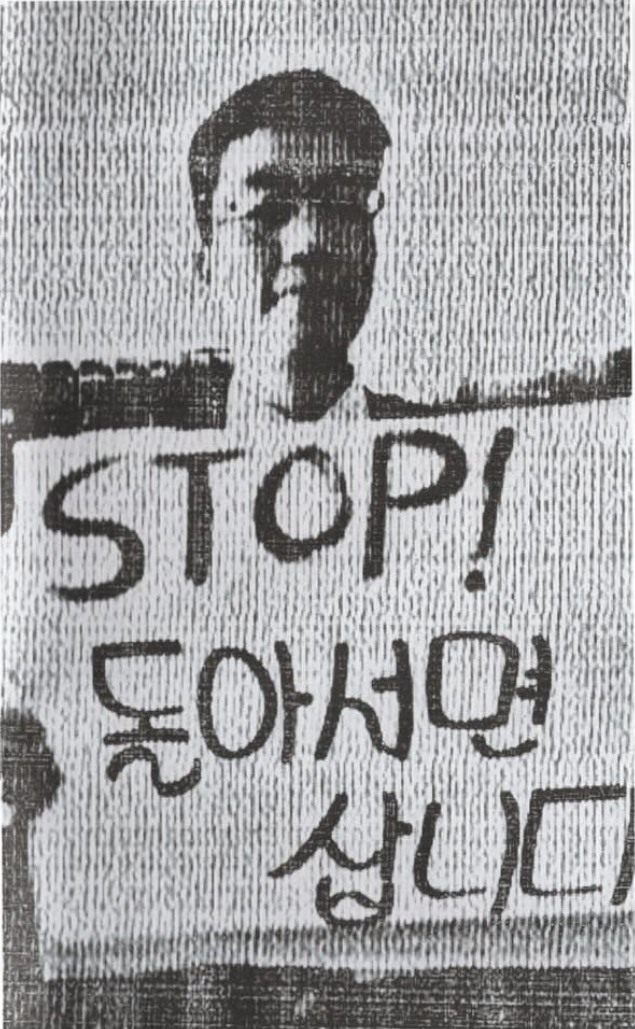 STOP!
돌아서면
삽니다